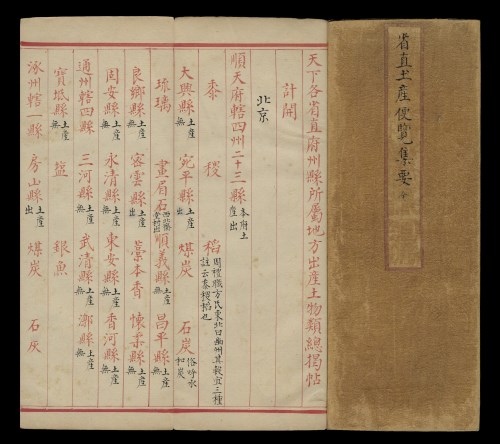 省直土產便覽集要
天下各省直府州縣所屬地方出產土物類總揭帖
計開
北京
順天府轄四州二十三縣 本府土產出
黍 稷 稻 周禮職方氏東北曰幽州其穀宜三種註云黍稷稻也
大興縣 土產無 宛平縣 土產出 煤炭 石炭 俗呼水和炭
琉璃 畫眉石 堂村出 順義縣 土產無 昌平縣 土產無
良鄉縣 土產無 密雲縣 土產出 藁本香 懷柔縣 土產無
固安縣 土產無 永清縣 土產無 東安縣 土產無 香河縣 土產無
通州轄四縣 土產無 三河縣 土產無 武清縣 土產無 漷縣 土產無
寶坻縣 土產出 鹽 銀魚
涿州轄一縣 土產無 房山縣 土產出 煤炭 石灰